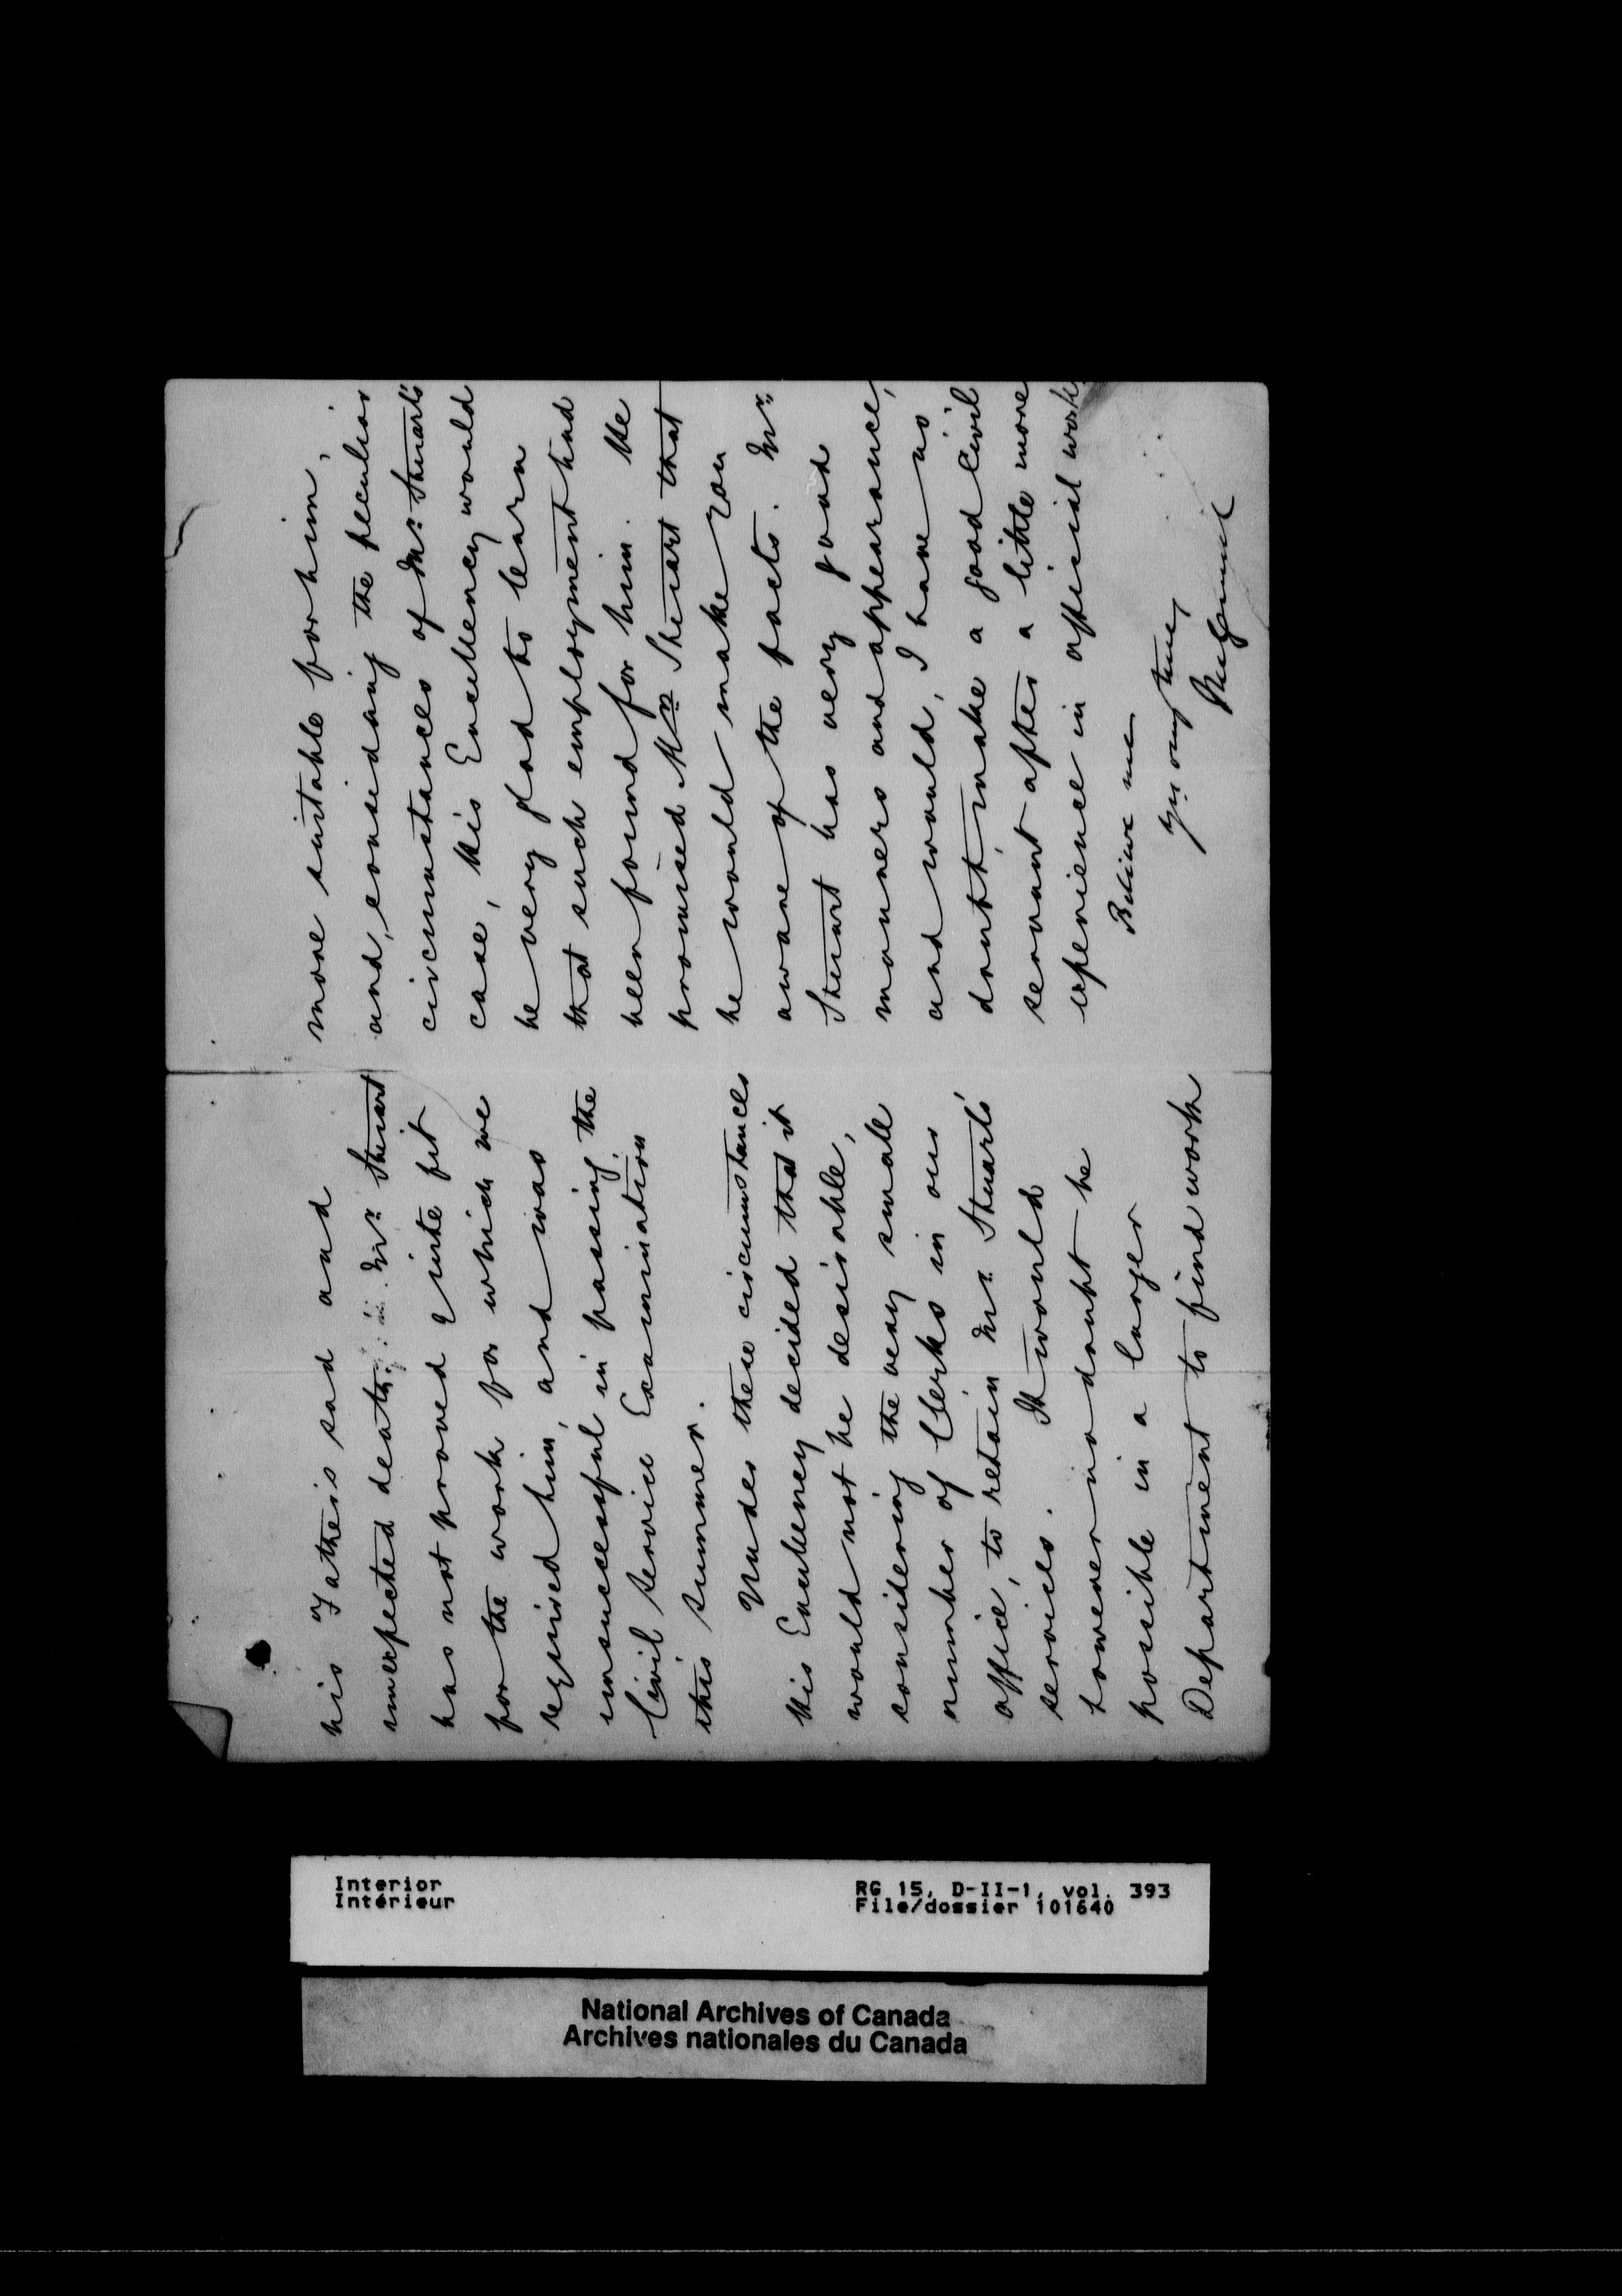 his Father's sad and
unexpected death. Mr. Stuart
has not proved quite fit
for the work for which we
required him, and was
unsuccessful in passing the
Civil Service Examination
this summer.
Under these circumstances
His Excellency decided that it
would not be desirable,
considering the very small
number of Clerks in our
office, to retain Mr. Stuart's
services. It would
however no doubt be
possible in a larger
Department to find work
more suitable for him,
and, considering the peculiar
circumstances of Mr. Stuart's
case, His Excellency would
be very glad to learn
that such employment had
been found for him. He
promised Mrs Stuart that
he would make you
aware of the facts. Mr.
Stuart has very good
manners and appearance,
and would, I have no
doubt, make a good Civil
servant after a little more
experience in official work.
Believe me
Yrs very truly
Interior
Intérieur
RG 15, D-II-1, vol. 393
File/dossier 101640
National Archives of Canada
Archives nationales du Canada